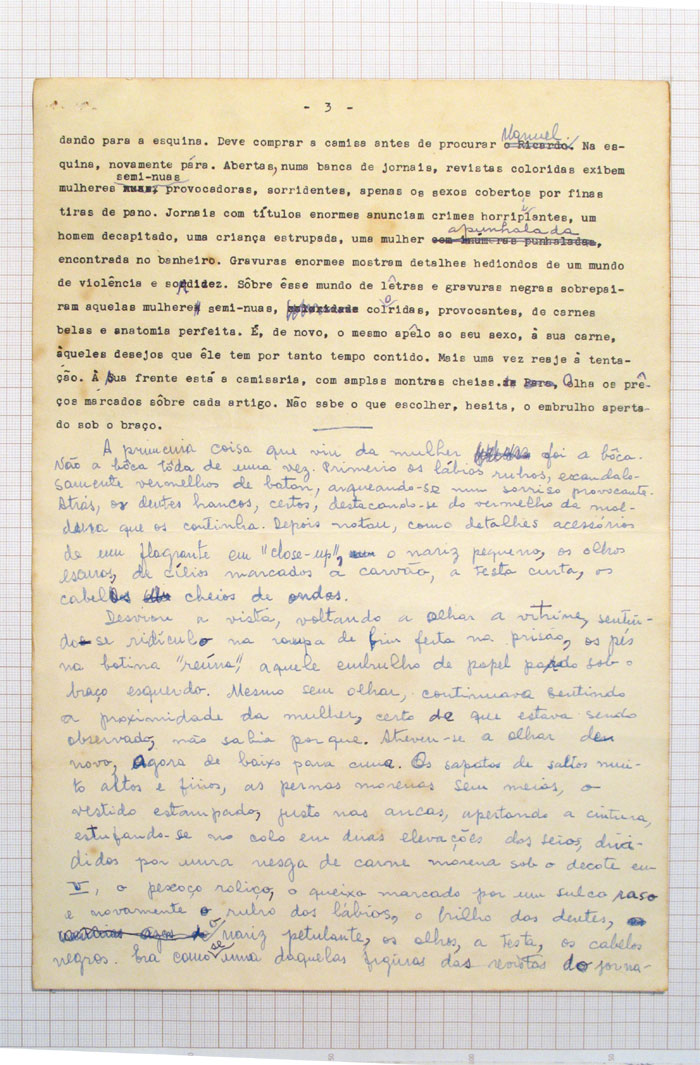 - 3 -
Manuel.
dando para a esquina. Deve comprar a camisa antes de procurar o Ricardo. Na es-
quina, novamente pára. Abertas, numa banca de jornais, revistas coloridas exibem
semi-nuas
mulheres nuas, provocadoras, sorridentes, apenas os sexos cobertos por finas
tiras de pano. Jornais com títulos enormes anunciam crimes horripilantes, um
apunhalada
homem decapitado, uma criança estrupada, uma mulher com inúmeras punhaladas,
encontrada no banheiro. Gravuras enormes mostram detalhes hediondos de um mundo
de violência e sordidez. Sôbre êsse mundo de lêtras e gravuras negras sobrepai-
ram aquelas mulheres semi-nuas, coloridas, provocantes, de carnes
belas e anatomia perfeita. É, de novo, o mesmo apêlo ao seu sexo, à sua carne,
àqueles desejos que êle tem por tanto tempo contido. Mais uma vez reaje à tenta-
ção. À sua frente está a camisaria, com amplas montras cheias. Para, Olha os prê-
ços marcados sôbre cada artigo. Não sabe o que escolher, hesita, o embrulho aperta-
do sob o braço.
A primeira coisa que viu da mulher foi a bôca.
Não a bôca tôda de uma vez. Primeiro os lábios rubros, escandalo-
samente vermelhos de baton, arqueando-se num sorriso provocante.
Atrás, os dentes brancos, certos, destacando-se do vermelho da mol-
dura que os continha. Depois notou, como detalhes acessórios
de um flagrante em "close-up", o nariz pequeno, os olhos
escuros, de cílios marcados a carvão, a testa curta, os
cabelos cheios de ondas.
Desviou a vista, voltando a olhar a vitrine, sentin-
do-se ridículo na roupa de brim feita na prisão, os pés
na botina "reúna", aquele embrulho de papel pardo sob o
braço esquerdo. Mesmo sem olhar, continuava sentindo
a proximidade da mulher, certo de que estava sendo
observado, não sabia porque. Atreveu-se a olhar de
novo, agora de baixo para cima. Os sapatos de saltos mui-
to altos e finos, as pernas morenas sem meias, o
vestido estampado, justo nas ancas, apertando a cintura,
estufando-se no colo em duas elevações dos seios, divi-
didos por uma nesga de carne morena sob o decote em
V, o pescoço roliço, o queixo marcado por um sulco raso
e novamente o rubro dos lábios, o brilho dos dentes,
o nariz petulante, os olhos, a testa, os cabelos
negros. Era como se uma daquelas figuras das revistas do jorna-